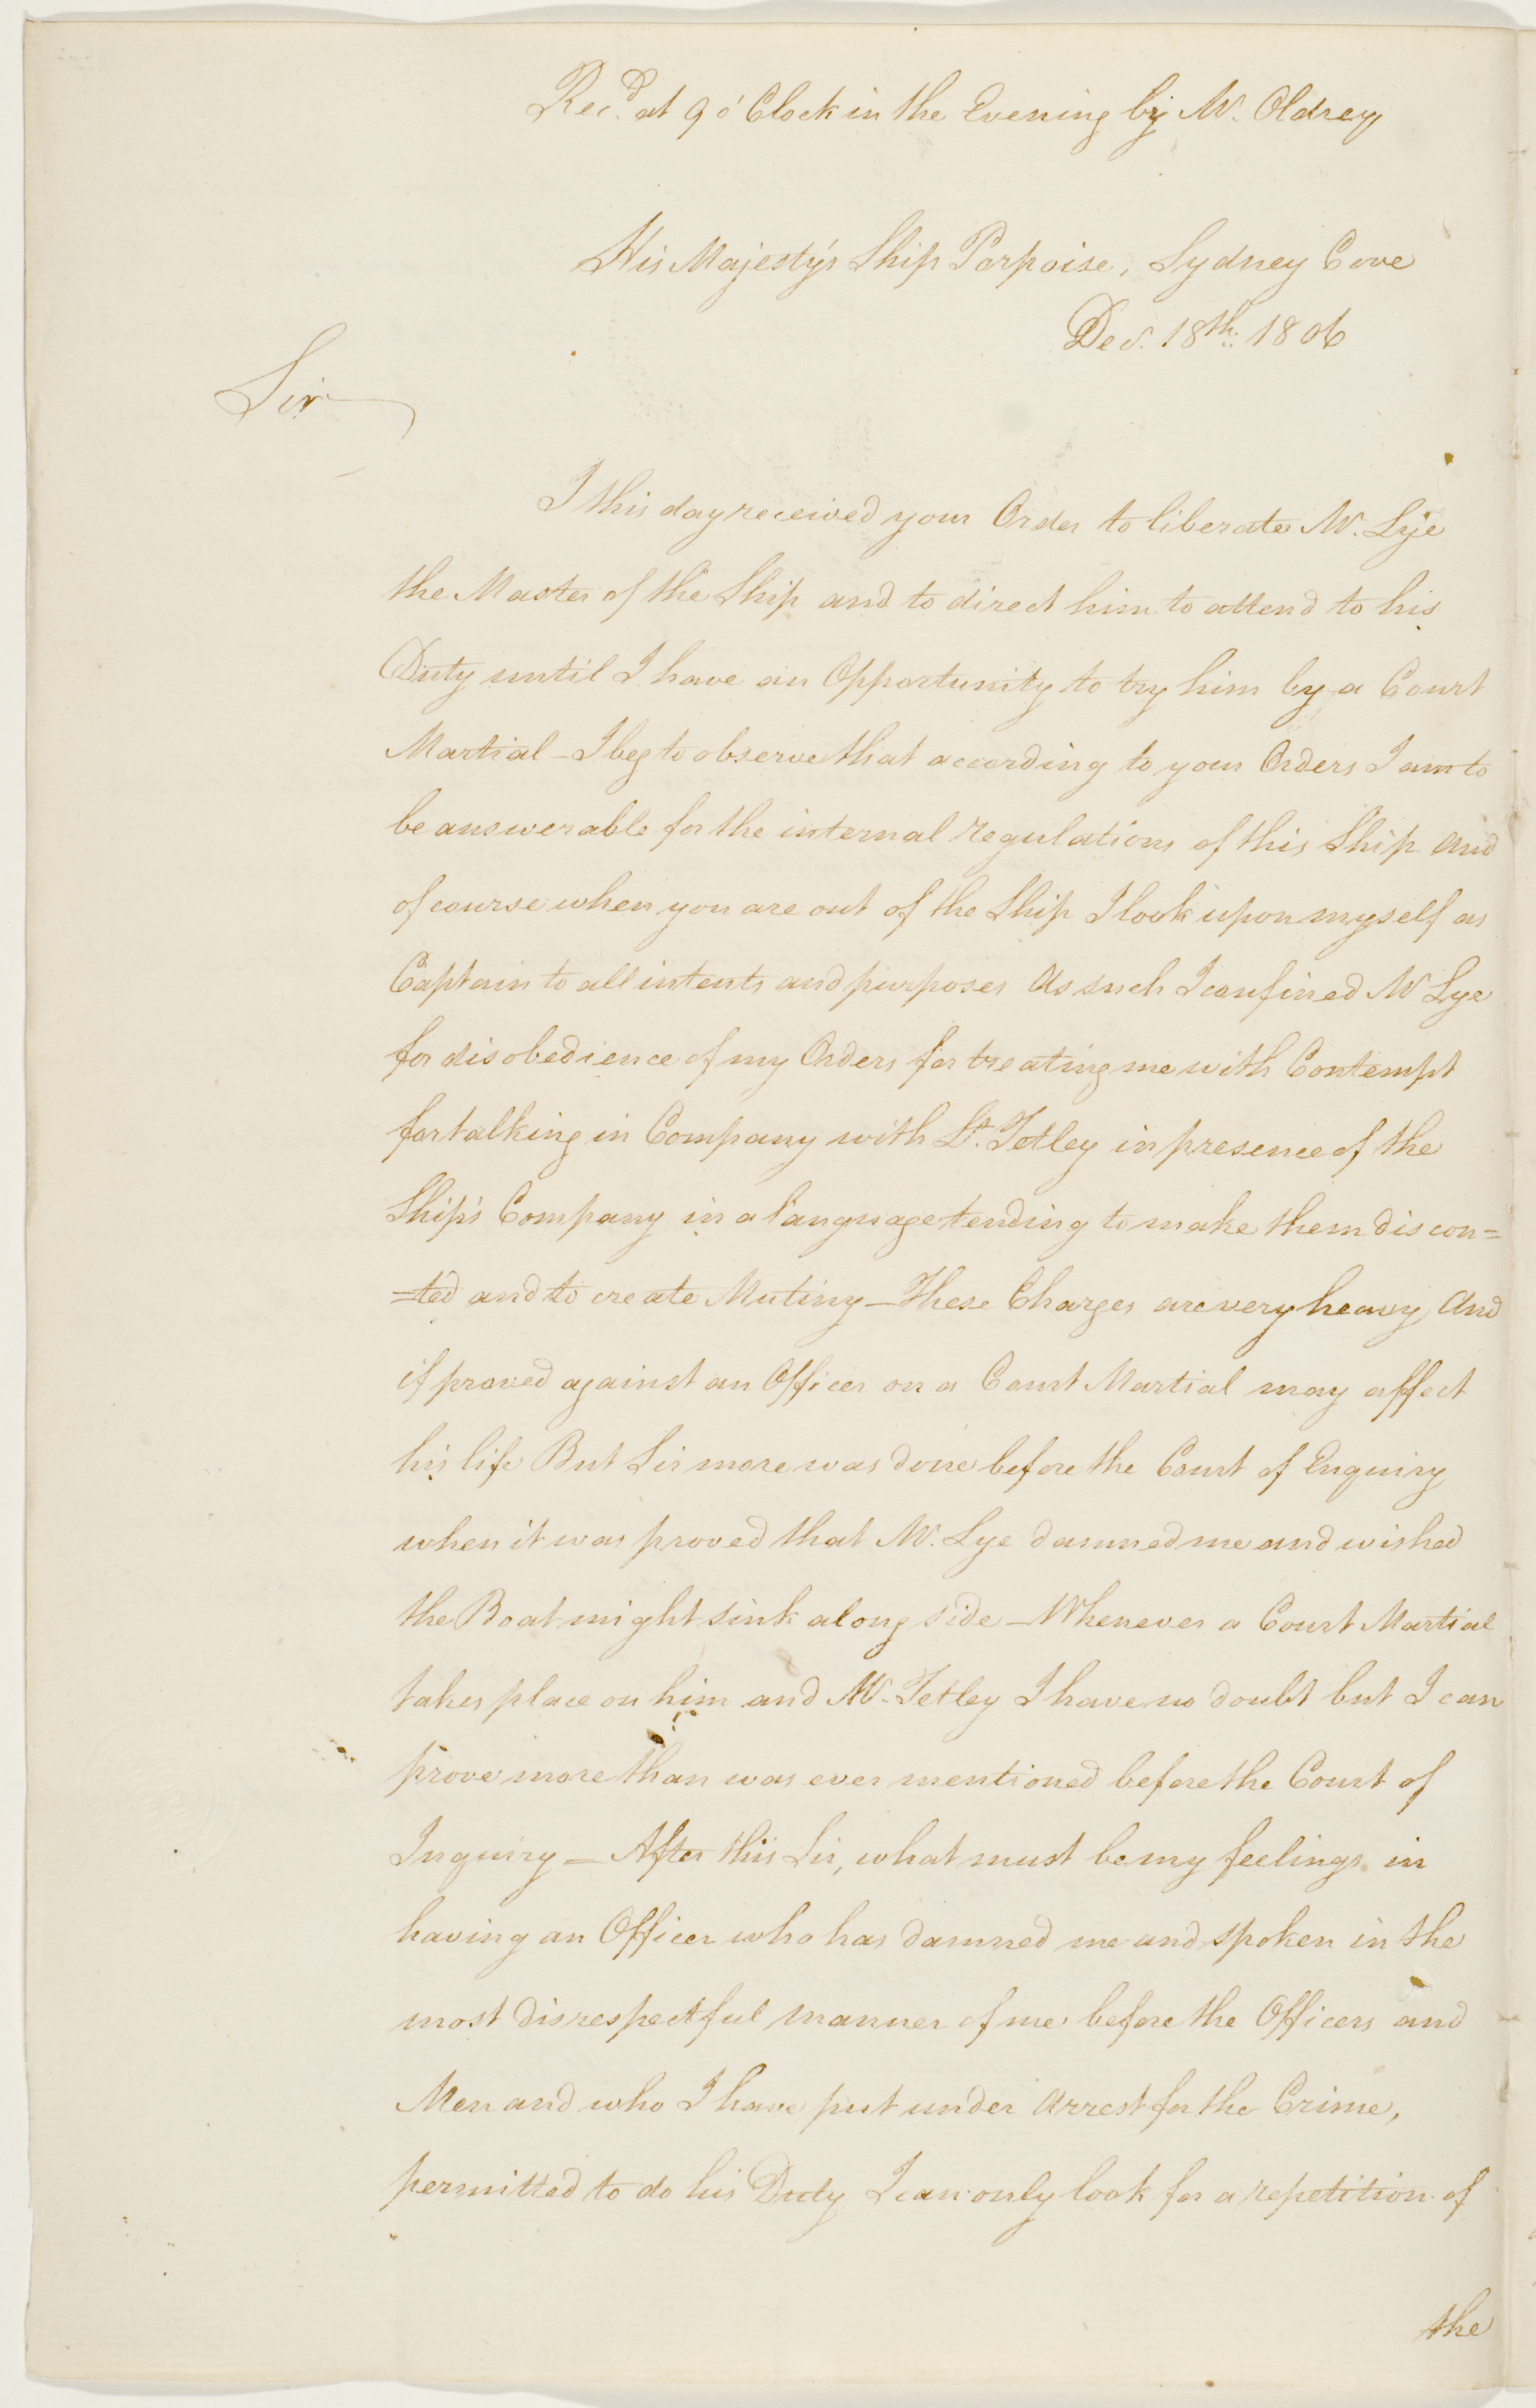 Rec.d at 9 o'Clock in the Evening by Mr. Oldrey
His Majesty's Ship Porpoise, Sydney Cove
Decr. 18th: 1806
Sir
I this day received your Order to liberate Mr. Lye
the Master of the Ship and to direct him to attend to his
Duty until I have an Opportunity to try him by a Court
Martial – I beg to observe that according to your Orders I am to
be answerable for the internal regulations of this Ship and
of course when you are out of the Ship I look upon myself as
Captain to all intents and purposes As such I confined Mr Lye
for disobedience of my Orders for treating me with Contempt
for talking in Company with Lt. Tetley in presence of the
Ship's Company in a language tending to make them discon=
=ted and to create Mutiny – These Charges are very heavy, And
if proved against an Officer on a Court Martial may affect
his life But Sir more was done before the Court of Enquiry
when it was proved that Mr. Lye damned me and wished
the Boat might sink along side – Whenever a Court Martial
takes place on him and Mr. Tetley I have no doubt but I can
prove more than was ever mentioned before the Court of
Inquiry – After this Sir, what must be my feelings in
having an Officer who has damned me and spoken in the
most disrespectful manner of me before the Officers and
Men and who I have put under Arrest for the Crime,
permitted to do his Duty I can only look for a repetition of
the